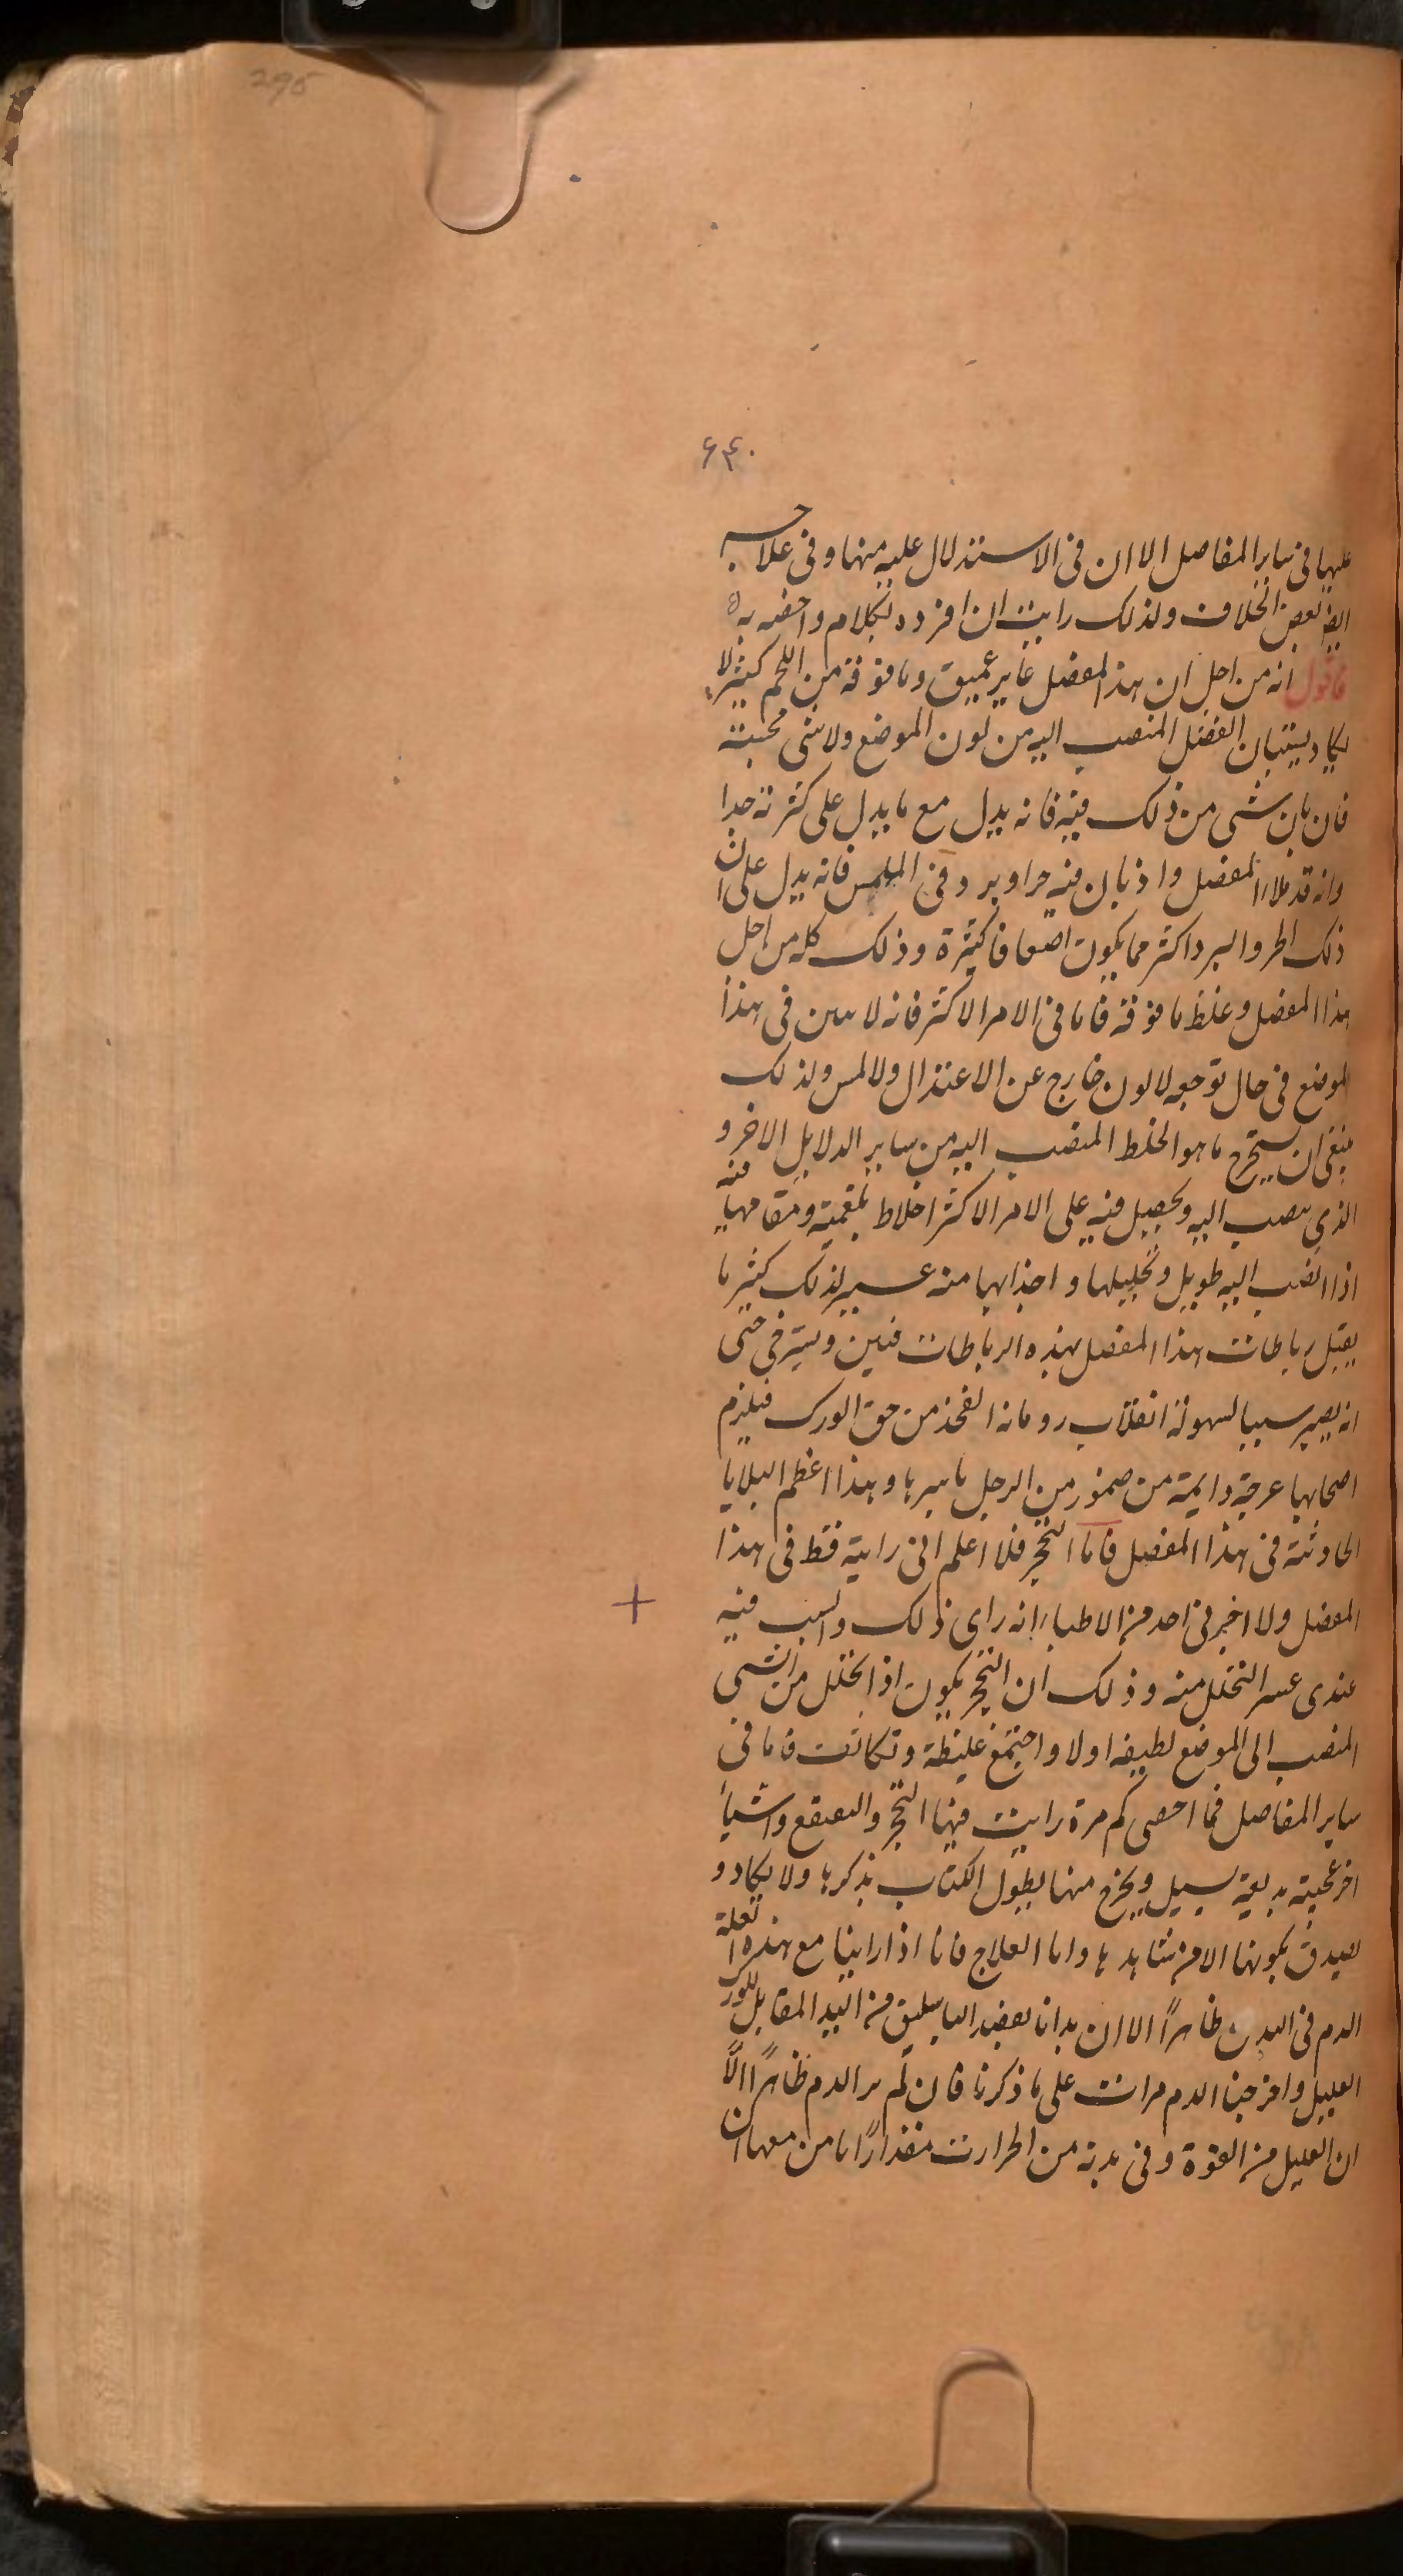 295
۶۴۰
عليها في ساير المفاصل الا ان في الاستدلال عليه منها وفي علاجه
ايضا بعض الخلاف ولذلك رايت ان افرده بكلام واخصه به
فاقول انه من اجل ان هذا المفصل غاير عميق وما فوقه من اللحم كثير لا
يكاد يستبان الفضل المنصب اليه من لون الموضع ولا شي مجسته
فان بان شي من ذلك فيه فانه يدل مع ما يدل على كثرته جدا
وانه قد ملاء المفصل واذ بان فيه حر او برد وفي الملمس فانه يدل على ان
ذلك الحر والبرد اكثر مما يكون اضعافا كثيرة وذلك كله من اجل
هذا المفصل وغلظ ما فوقه فاما في الامر الاكثر فانه لا يبين في هذا
الموضع في حال توجعه لا لون خارج عن الاعتدال ولا لمس ولذلك
ينبغي ان يستخرج ما هو الخلط المنصب اليه من ساير الدلايل الاخر و
الذي ينصب اليه ويحصل فيه على الامر الاكثر اخلاط بلغمية ومقامها فيه
اذا انصب اليه طويل وتحليلها واجذابها منه عسير لذلك كثير ما
يقبل رباطات هذا المفصل بهذه الرباطات فتلين وتسترخي حتى
انه يصير سببا لسهولة انقلاب رومانة الفخذ من حق الورك فيلزم
اصحابها عرجة دايمة من ضمور من الرجل باسرها وهذا اعظم البلايا
الحادثة في هذا المفصل فاما التحجر فلا اعلم اني رايته قط في هذا
المفصل ولا اخبرني احد من الاطباء انه راى ذلك والسبب فيه
عندى عسر التحلل منه وذلك ان التحجر يكون اذا تحلل من الشي
المنصب الى الموضع لطيفه اولا واجتمع غليظه وتكاثفت فاما في
ساير المفاصل فما احصى كم مرة رايت فيها التحجر والتعقع واشياء
اخر عجيبة بديعة يسيل ويخرج منها يطول الكتاب بذكرها ولا يكاد و
يصدق بكونها الا من شاهدها واما العلاج فانا اذا راينا مع هذه العلة
الدم في البدن ظاهرًا الا ان بدانا بفصد الباسليق من اليد المقابل للورك
العليل واخرجنا الدم مرات على ما ذكرنا فان لم نر الدم ظاهرًا الّا
ان العليل من القوة وفي بدنه من الحرارت مقدارًا ما من معها ان